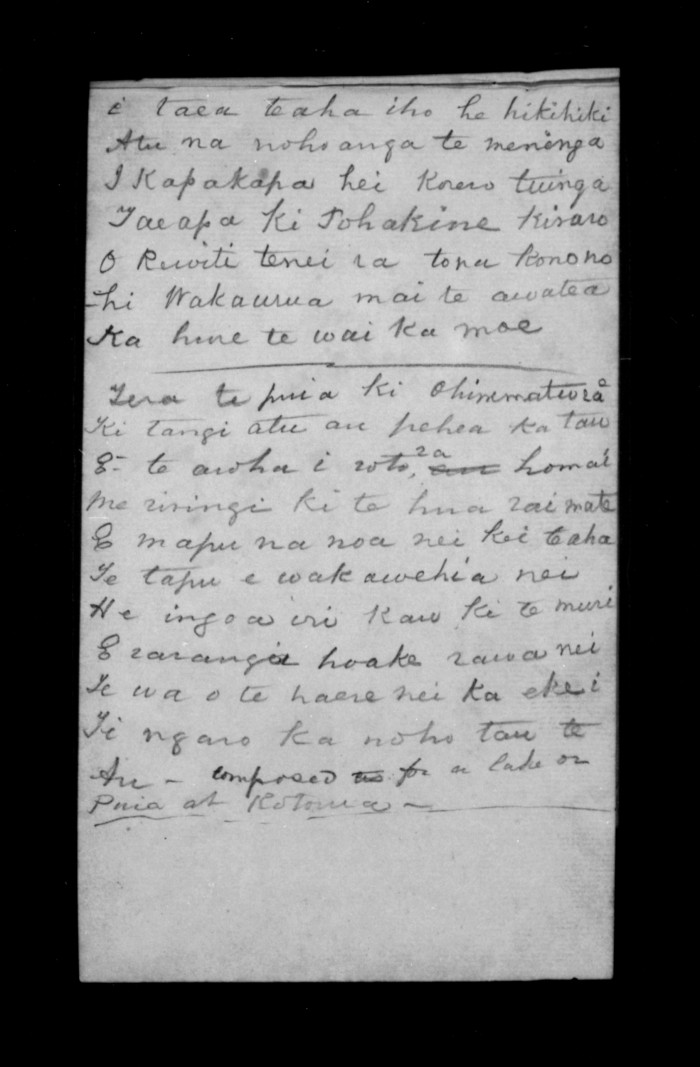 e taea te aha iho he hikihiki
Atu na nohoanga te meninga
I Kapakapa hei Korero tuinga
Taeapa ki Tohakine kiraro
O Ruwiti tenei ra tona konono
-hi Wakaurua mai te awatea
Ka hure te wai ka moe
Tera te puia ki Ohinematuora
Ki tangi atu au pehea ka tau
E- te aroha i roto, ra homai
Me riringi ki te hua rai mate
E mapu na noa nei kei te aha
Te tapu e wakawehia nei
He ingoa iri kau ki te muri
E rarangia hoake rawa nei
Te wa o te haere nei ka eke i
Ti ngaro ka noho tau te
Au - composed for a lake or
Puia at Rotorua -